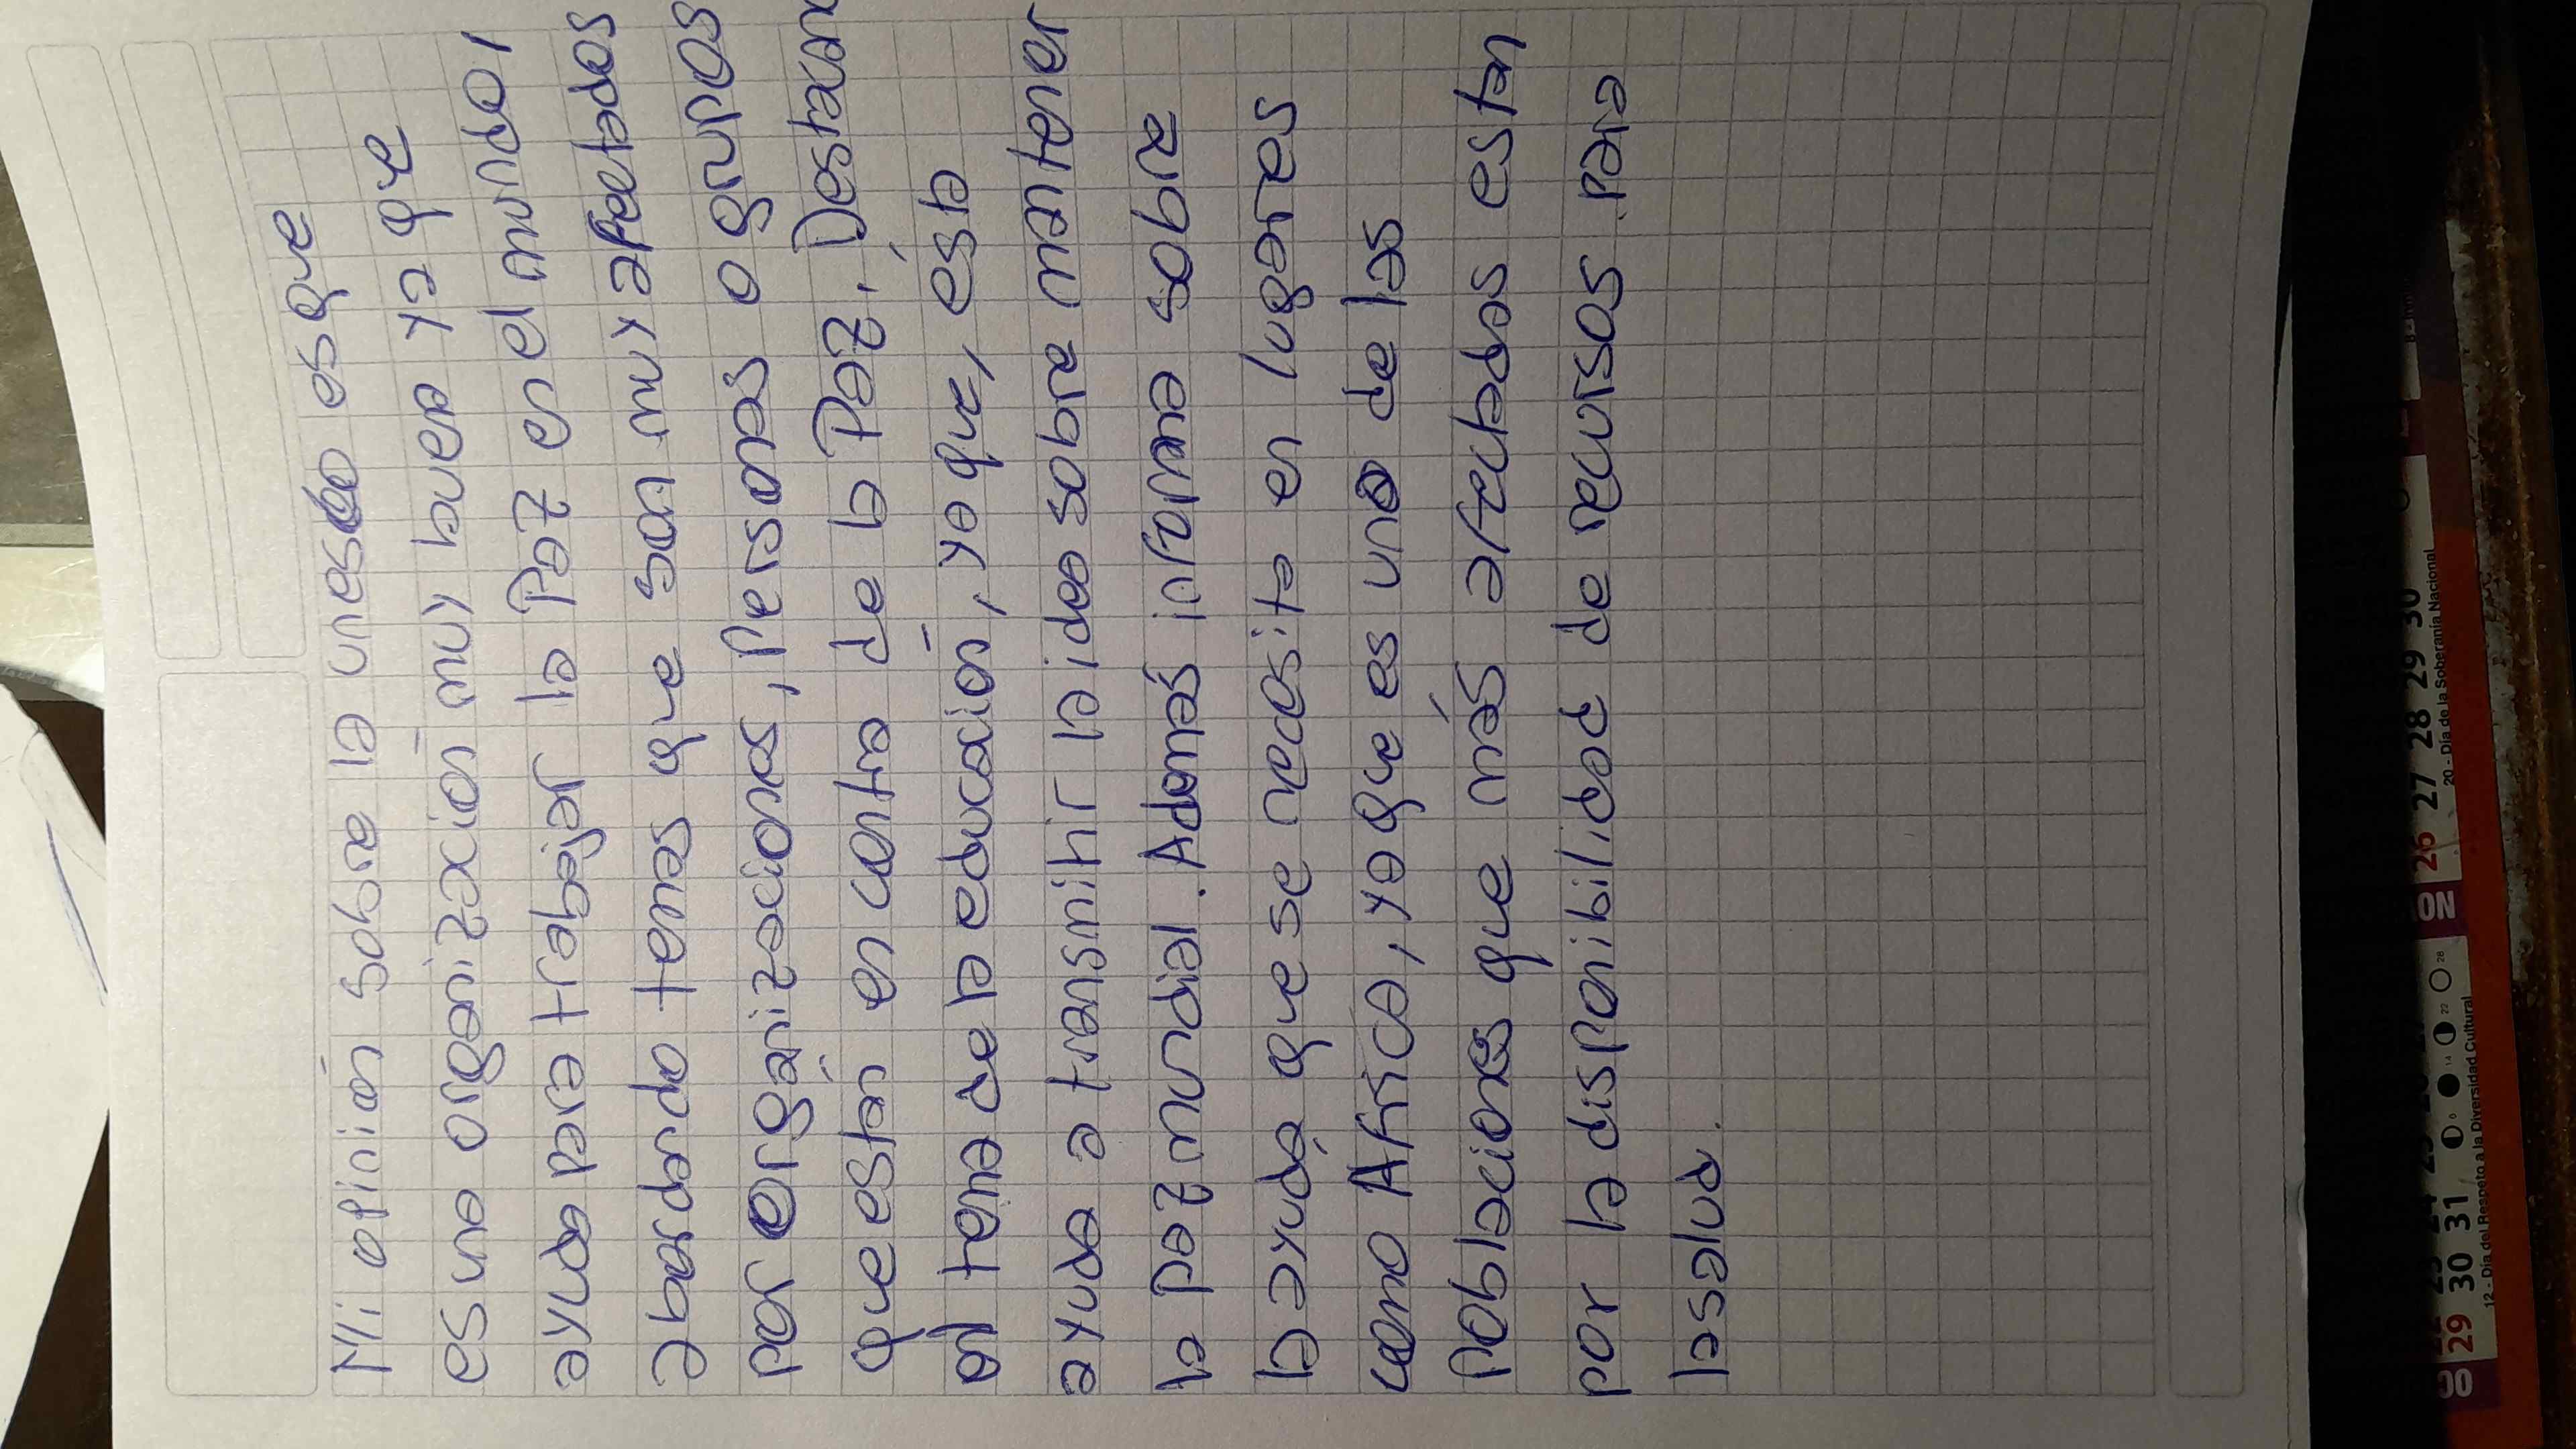 Mi opinión sobre la unesco es que
es una organización muy buena ya que
ayuda para trabajar la Paz en el mundo,
abordando temas que son muy afectados
por organizaciones, personas o grupos
que están en contra de la Paz. Destacan
el tema de la educación, ya que, ésta
ayuda a transmitir la idea sobre mantener
la paz mundial. Además informa sobre
la ayuda que se necesita en lugares
como Africa, ya que es una de las
Poblaciones que más afectadas estan
por la disponibilidad de recursos para
la salud.
29 30 31
26 27 28 29 30
12 - Día del Respeto a la Diversidad Cultural
20 - Día de la Soberanía Nacional